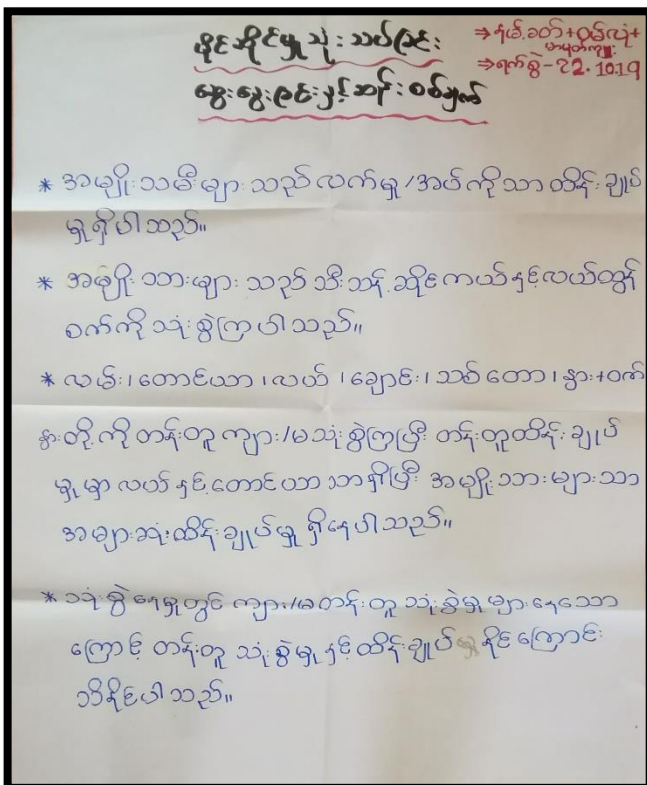 ပိုင်ဆိုင်မှုသုံးသပ်ခြင်း
ဆွေးနွေးခြင်းနှင့်ဆန်းစစ်ချက်
⇒ရက်စွဲ-22.10.19
* အမျိုးသမီးများသည်လက်မှု/အပ်ကိုသာထိန်းချုပ်
မှုရှိပါသည်။
* အမျိုးသားများသည်သီးသန့်ဆိုင်ကယ်နှင့်လယ်ထွန်
စက်ကိုသုံးစွဲကြပါသည်။
* လမ်း၊တောင်ယာ၊လယ်၊ချောင်း၊သစ်တော၊နွား+ဝက်
နွားတို့ကိုတန်းတူကျား/မသုံးစွဲကြပြီးတန်းတူထိန်းချုပ်
မှုမှာလယ်နှင့်တောင်ယာသာရှိပြီးအမျိုးသားများသာ
အများဆုံးထိန်းချုပ်မှုရှိနေပါသည်။
* သုံးစွဲနေမှုတွင်ကျား/မတန်းတူသုံးစွဲမှုများနေသော
ကြောင့်တန်းတူသုံးစွဲမှုနှင့်ထိန်းချုပ်မှုနိုင်ကြောင်း
သိရှိနိုင်ပါသည်။